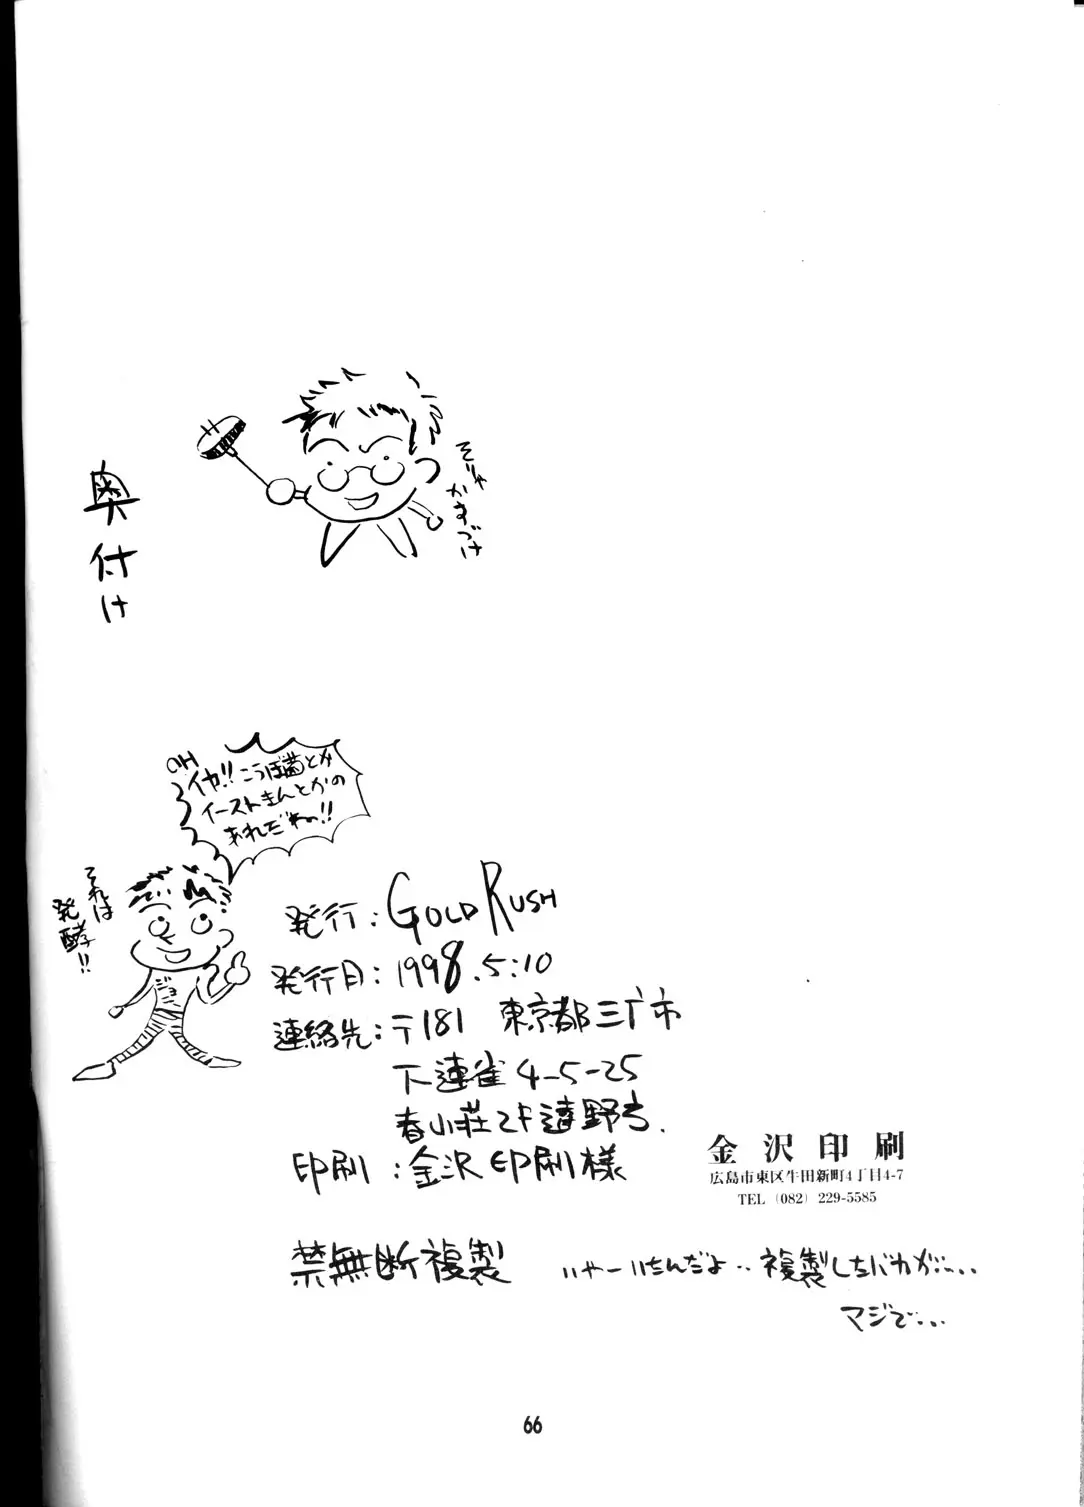 奥付け
そりゃ
かすづけ
OH
イヤ!!こうぼ菌とか
イーストきんとかの
あれだねっ!!
それは
発酵!!
ジョ
発行:GOLD RUSH
発行日:1998.5.10
連絡先:〒181 東京都三鷹市
下連雀4-5-25
春山荘2F遠野方.
印刷:金沢印刷様
金沢印刷
広島市東区牛田新町4丁目4-7
TEL (082) 229-5585
禁無断複製
いやーいたんだよ..複製したバカが....
マジで...
66